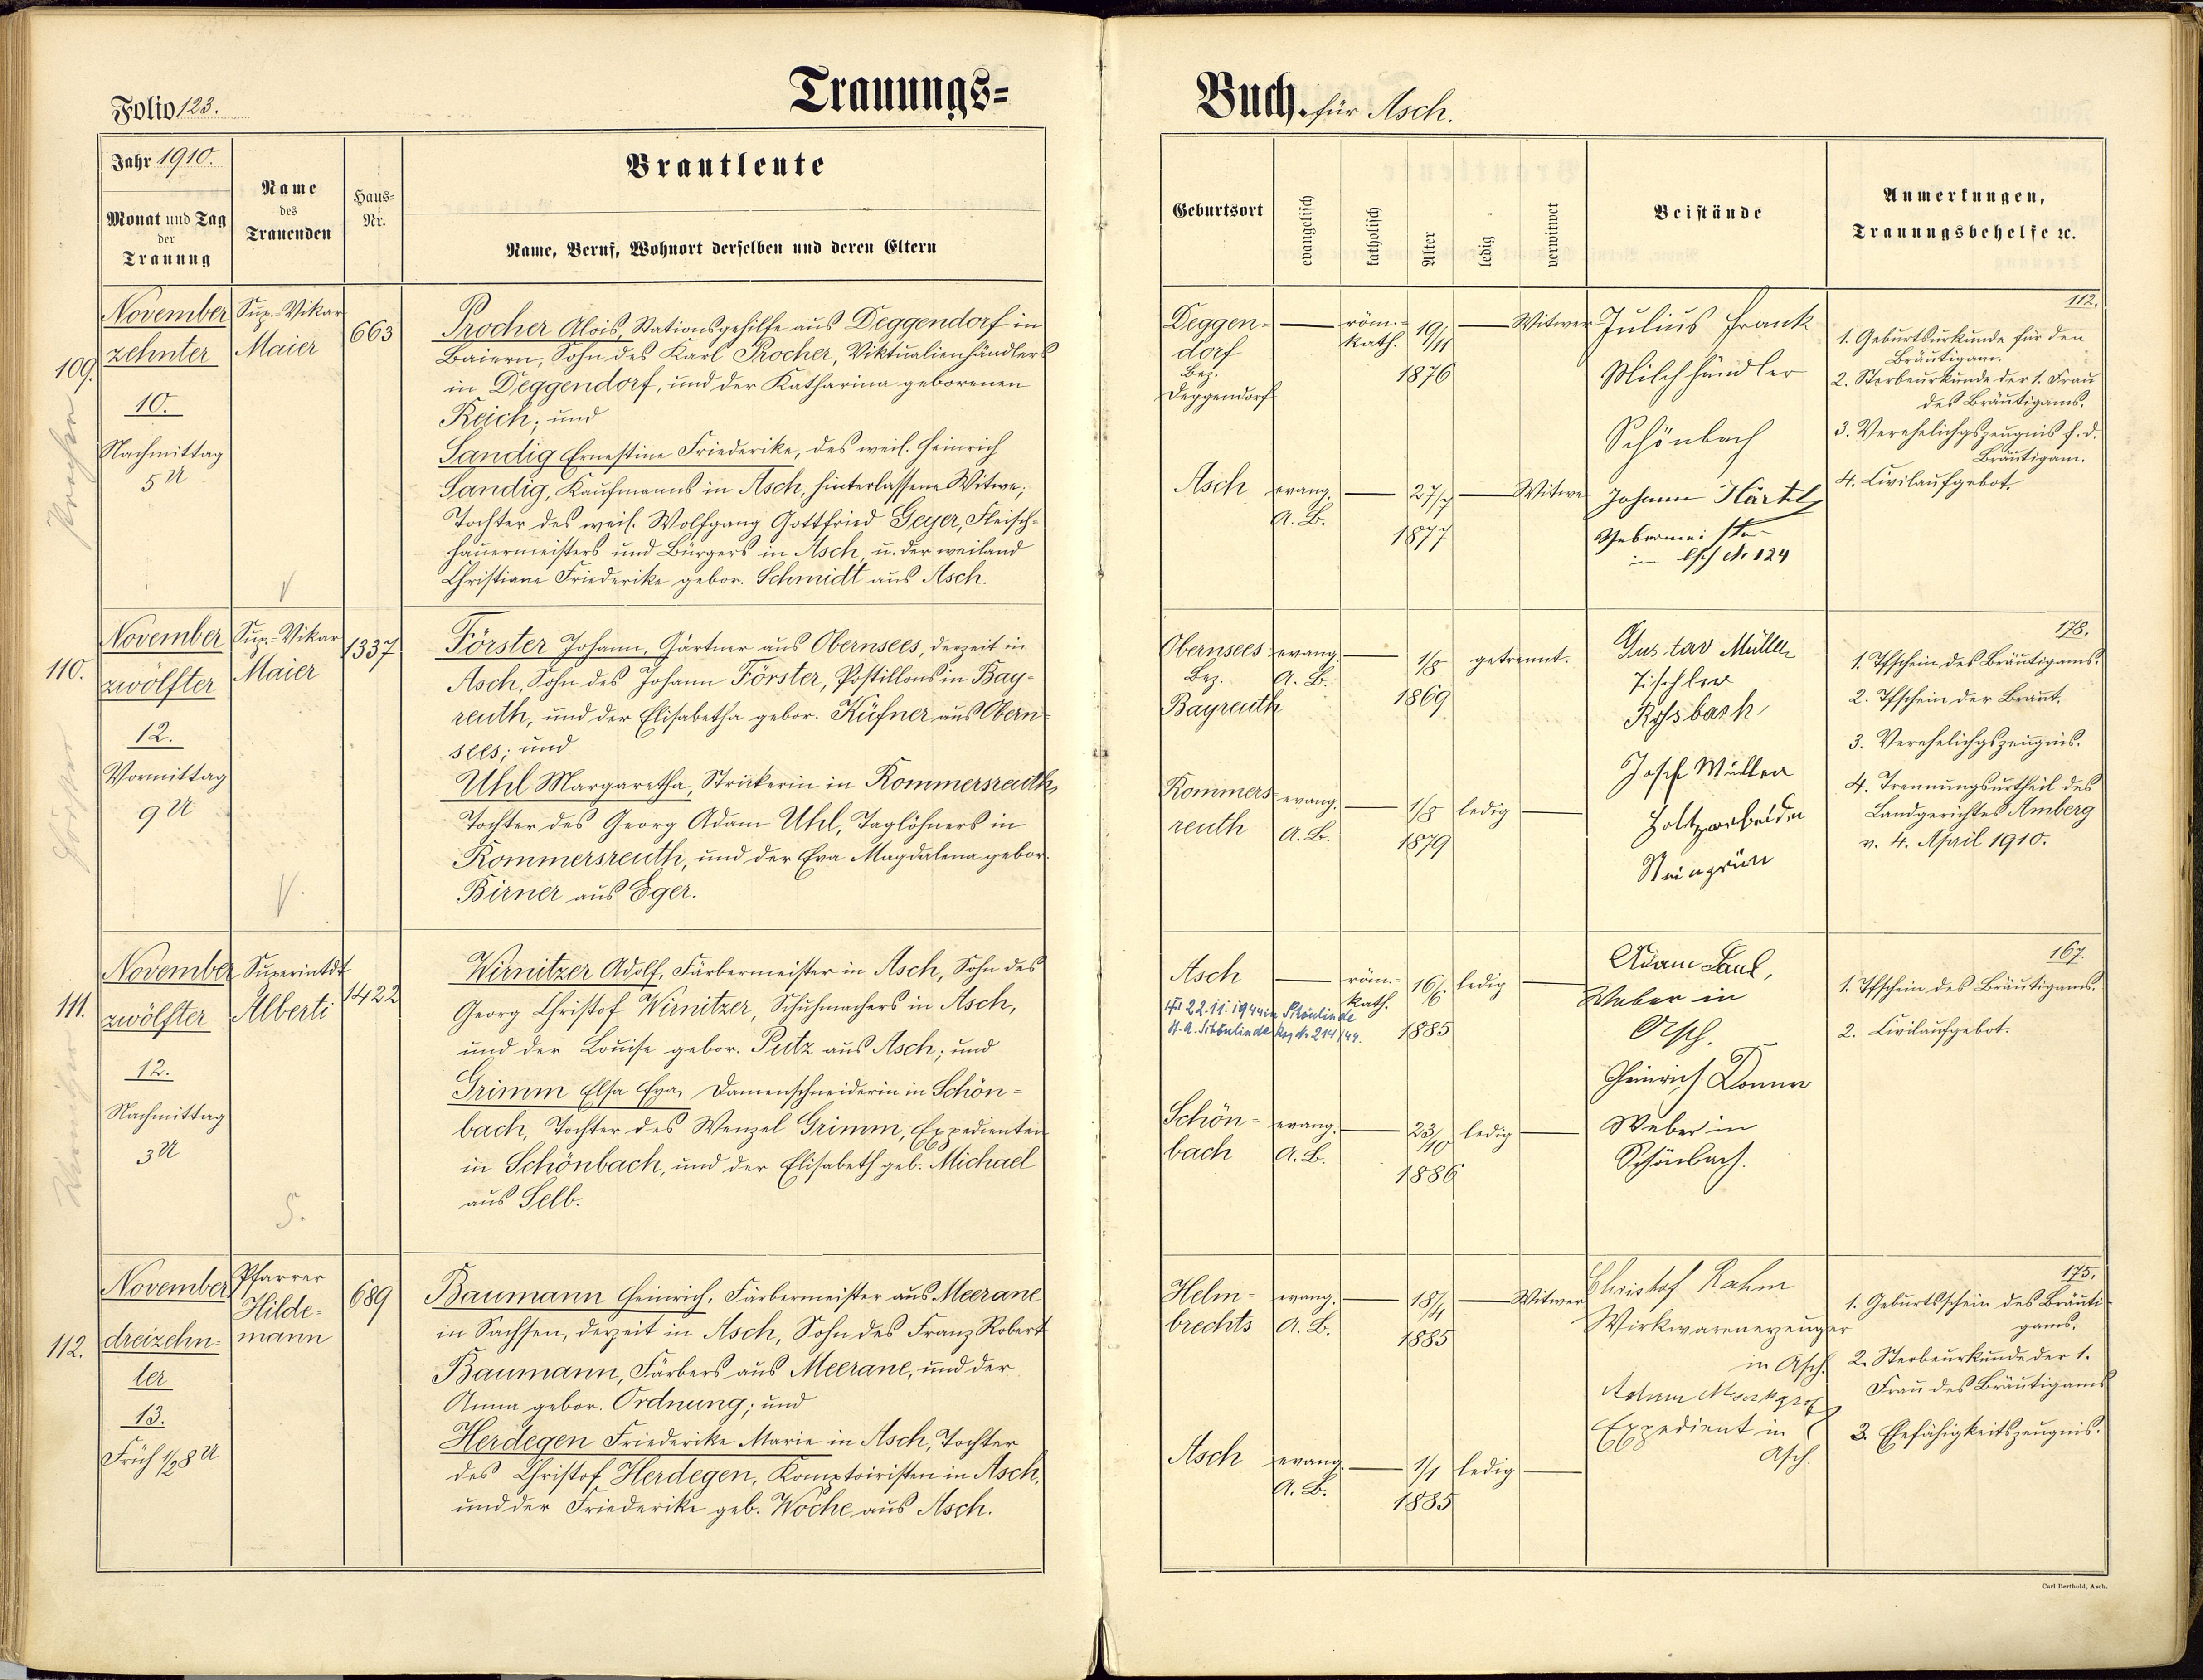 Folio 123.
Trauungs=
Buch. für Asch.
Jahr 1910.
Monat und Tag
der
Trauung
Name
des
Trauenden
Haus=
Nr.
Brautleute
Name, Beruf, Wohnort derselben und deren Eltern
Geburtsort
evangelisch
katholisch
Alter
ledig
verwitwet
Beistände
Anmerkungen,
Trauungsbehelfe ꝛc.
109.
November
zehnter
10.
Nachmittag
5 U
Sup.-Vikar
Maier
663
Procher Alois, Stationsgehilfe aus Deggendorf in
Baiern, Sohn des Karl Procher, Viktualienhändlers
in Deggendorf, und der Katharina geborenen
Reich; und
Sandig Ernestine Friederike, des weil. Heinrich
Sandig, Kaufmanns in Asch, hinterlassene Witwe,
Tochter des weil. Wolfgang Gottfried Geyer, Fleisch=
hauermeisters und Bürgers in Asch, u. der weiland
Christiane Friederike gebor. Schmidt aus Asch.
Deggen=
dorf
Bez.
Deggendorf
röm.=
kath.
19/11
1876
Witwer
Asch
evang.
A. B.
27/7
1877
Witwe
Julius Frank
Milchhändler
Schönbach
Johann Härtl
Webermeister
in Asch No 124
112.
1. Geburtsurkunde für den
Bräutigam.
2. Sterbeurkunde der 1. Frau
des Bräutigams.
3. Verehelichgszeugnis f. d.
Bräutigam.
4. Civilaufgebot.
110.
November
zwölfter
12.
Vormittag
9 U
Sup.-Vikar
Maier
1337
Förster Johann, Gärtner aus Obernsees, derzeit in
Asch, Sohn des Johann Förster, Postillons in Bay=
reuth, und der Elisabetha gebor. Küfner aus Obern=
sees; und
Uhl Margaretha, Strickerin in Rommersreuth,
Tochter des Georg Adam Uhl, Taglöhners in
Rommersreuth, und der Eva Magdalena gebor.
Birner aus Eger.
Obernsees
Bez.
Bayreuth
evang.
A. B.
1/8
1869
getrennt.
Rommers=
reuth
evang.
A. B.
1/8
1879
ledig
Gustav Müller
Tischler
Roßbach
Josef Müller
Holtzarbeider
Neingrün
178.
1. Tfschein des Bräutigams.
2. Tfschein der Braut.
3. Verehelichgszeugnis.
4. Trennungsurtheil des
Landgerichtes Amberg
v. 4. April 1910.
111.
November
zwölfter
12.
Nachmittag
3 U
Superintdt
Alberti
1422
Wirnitzer Adolf, Färbermeister in Asch, Sohn des
Georg Christof Wirnitzer, Schuhmachers in Asch,
und der Louise gebor. Putz aus Asch; und
Grimm Elsa Eva, Damenschneiderin in Schön=
bach, Tochter des Wenzel Grimm, Expedienten
in Schönbach, und der Elisabeth geb. Michael
aus Selb.
Asch
röm.=
kath.
22.11.1944 in Schönlinde
St.A. Schönlinde Reg. Nr. 214/44.
16/6
1885
ledig
Schön=
bach
evang.
A. B.
23/10
1886
ledig
Adam Saul,
Weber in
Asch.
Heinrich Donner
Weber in
Schönbach.
167.
1. Tfschein des Bräutigams.
2. Civilaufgebot.
112.
November
dreizehn=
ter
13.
Früh 1/2 8 U
Pfarrer
Hilde=
mann
689
Baumann Heinrich, Färbermeister aus Meerane
in Sachsen, derzeit in Asch, Sohn des Franz Robert
Baumann, Färbers aus Meerane, und der
Anna gebor. Ordnung; und
Herdegen Friederike Marie in Asch, Tochter
des Christof Herdegen, Komptoiristen in Asch,
und der Friederike geb. Woche aus Asch.
Helm=
brechts
evang.
A. B.
18/4
1885
Witwer
Asch
evang.
A. B.
1/1
1885
ledig
Christof Rahm
Wirkwarenerzeuger
in Asch.
Expedient in
Asch.
175.
1. Geburtsschein des Bräuti=
gams.
2. Sterbeurkunde der 1.
Frau des Bräutigams
3. Ehefähigkeitszeugnis.
Carl Berthold, Asch.